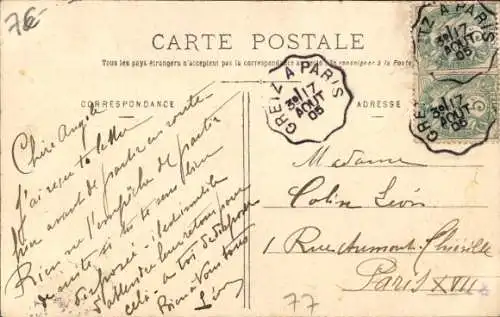 7€
CARTE POSTALE
Tous les pays étrangers n'acceptent pas la correspondance au recto (Se renseigner à la Poste)
CORRESPONDANCE
ADRESSE
GRETZ A PARIS
3e/17
AOUT
05
GRETZ A PARIS
3e/17
AOUT
05
GRETZ A PARIS
3e/17
AOUT
05
Chère Angèle
J'ai reçu ta lettre
hier avant de partir en route
Rien ne l'empêche de partir
de suite si tu te sens bien
disposée
d'attendre leur retour pour
celà - à toi de disposer
Bien à Vous tous
Léon
Madame
Colin Léon
1 Rue Aumont Thiéville
Paris XVII
77